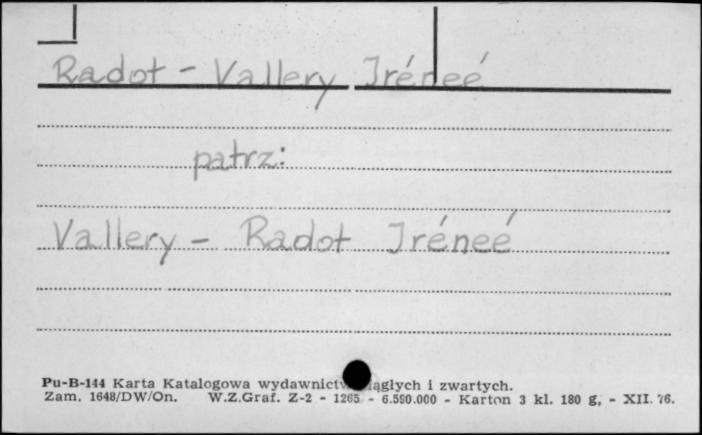 Radot - Vallery Iréneé
patrz:
Vallery - Radot Iréneé
Pu-B-144 Karta Katalogowa wydawnictw ciągłych i zwartych.
Zam. 1648/DW/On. W.Z.Graf. Z-2 - 1265 - 6.590.000 - Karton 3 kl. 180 g, - XII. 76.